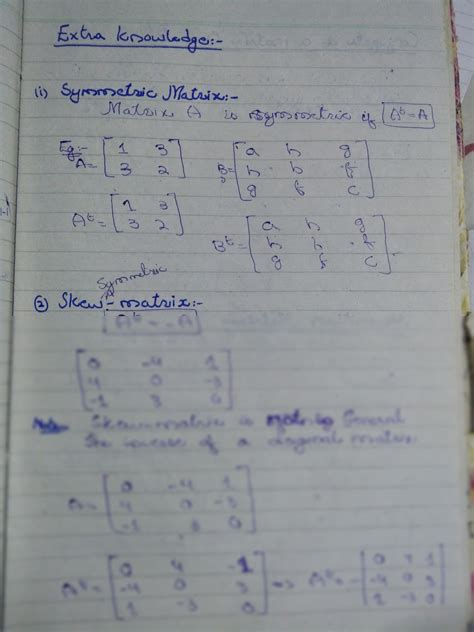 Extra knowledge:-
(i) Symmetric Matrix:-
Matrix A is symmetric if Aᵗ=A
Eg:-
A= [1 3
3 2]
B= [a h g
h b f
g f c]
Aᵗ= [1 3
3 2]
Bᵗ= [a h g
h b f
g f c]
Symmetric
② Skew-matrix:-
Aᵗ = -A
[0 -4 1
4 0 -3
-1 3 0]
Skew-matrix is General
the of a diagonal matrix
A= [0 -4 1
4 0 -3
-1 3 0]
Aᵗ= [0 4 -1
-4 0 3
1 -3 0] => Aᵗ=-